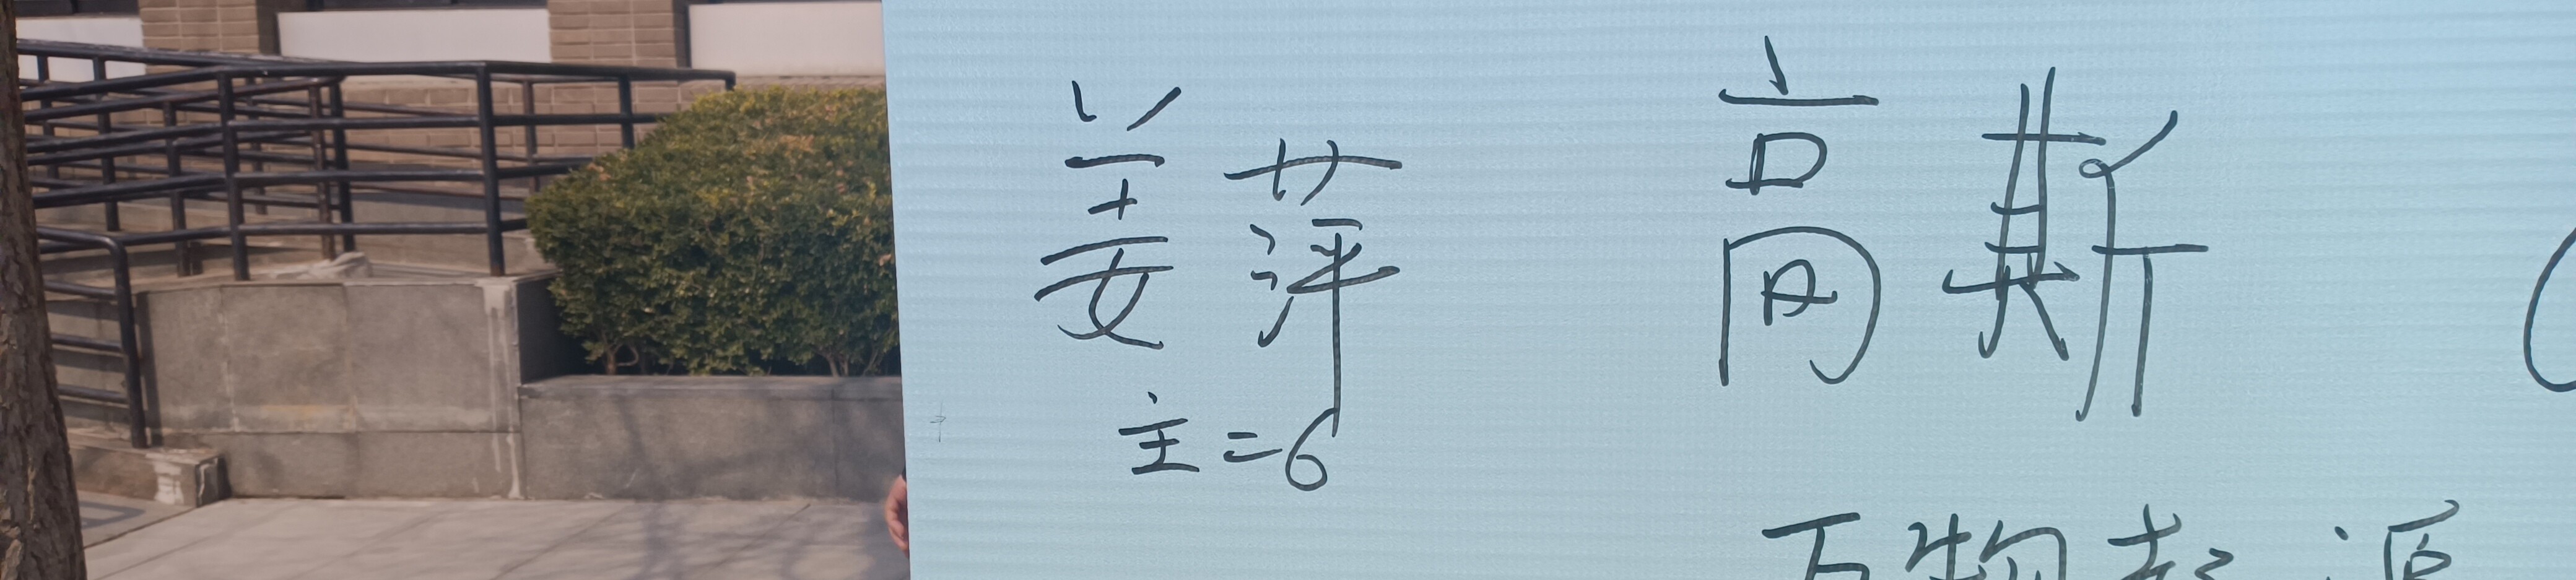 姜萍 高斯
主=6
万物起源